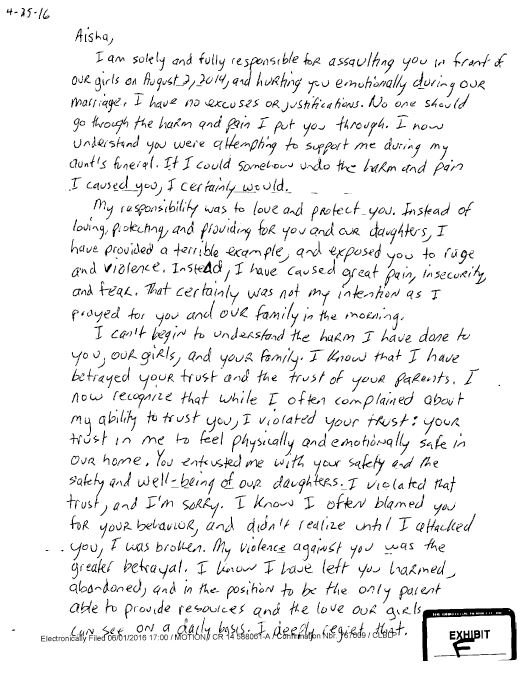 4-25-16
Aisha,
I am solely and fully responsible for assaulting you in front of
our girls on August 2, 2014, and hurting you emotionally during our
marriage. I have no excuses or justifications. No one should
go through the harm and pain I put you through. I now
understand you were attempting to support me during my
aunt's funeral. If I could somehow undo the harm and pain
I caused you, I certainly would.
My responsibility was to love and protect you. Instead of
loving, protecting, and providing for you and our daughters, I
have provided a terrible example, and exposed you to rage
and violence. Instead, I have caused great pain, insecurity,
and fear. That certainly was not my intention as I
prayed for you and our family in the morning.
I can't begin to understand the harm I have done to
you, our girls, and your family. I know that I have
betrayed your trust and the trust of your parents. I
now recognize that while I often complained about
my ability to trust you, I violated your trust: your
trust in me to feel physically and emotionally safe in
our home. You entrusted me with your safety and the
safety and well-being of our daughters. I violated that
trust, and I'm sorry. I know I often blamed you
for your behavior, and didn't realize until I attacked
you, I was broken. My violence against you was the
greater betrayal. I know I have left you harmed,
abandoned, and in the position to be the only parent
able to provide resources and the love our girls
can see on a daily basis. I deeply regret that.
Electronically Filed 06/01/2016 17:00 / MOTION / CR 14 588061-A / Confirmation Nbr. / CLBCP
EXHIBIT
F